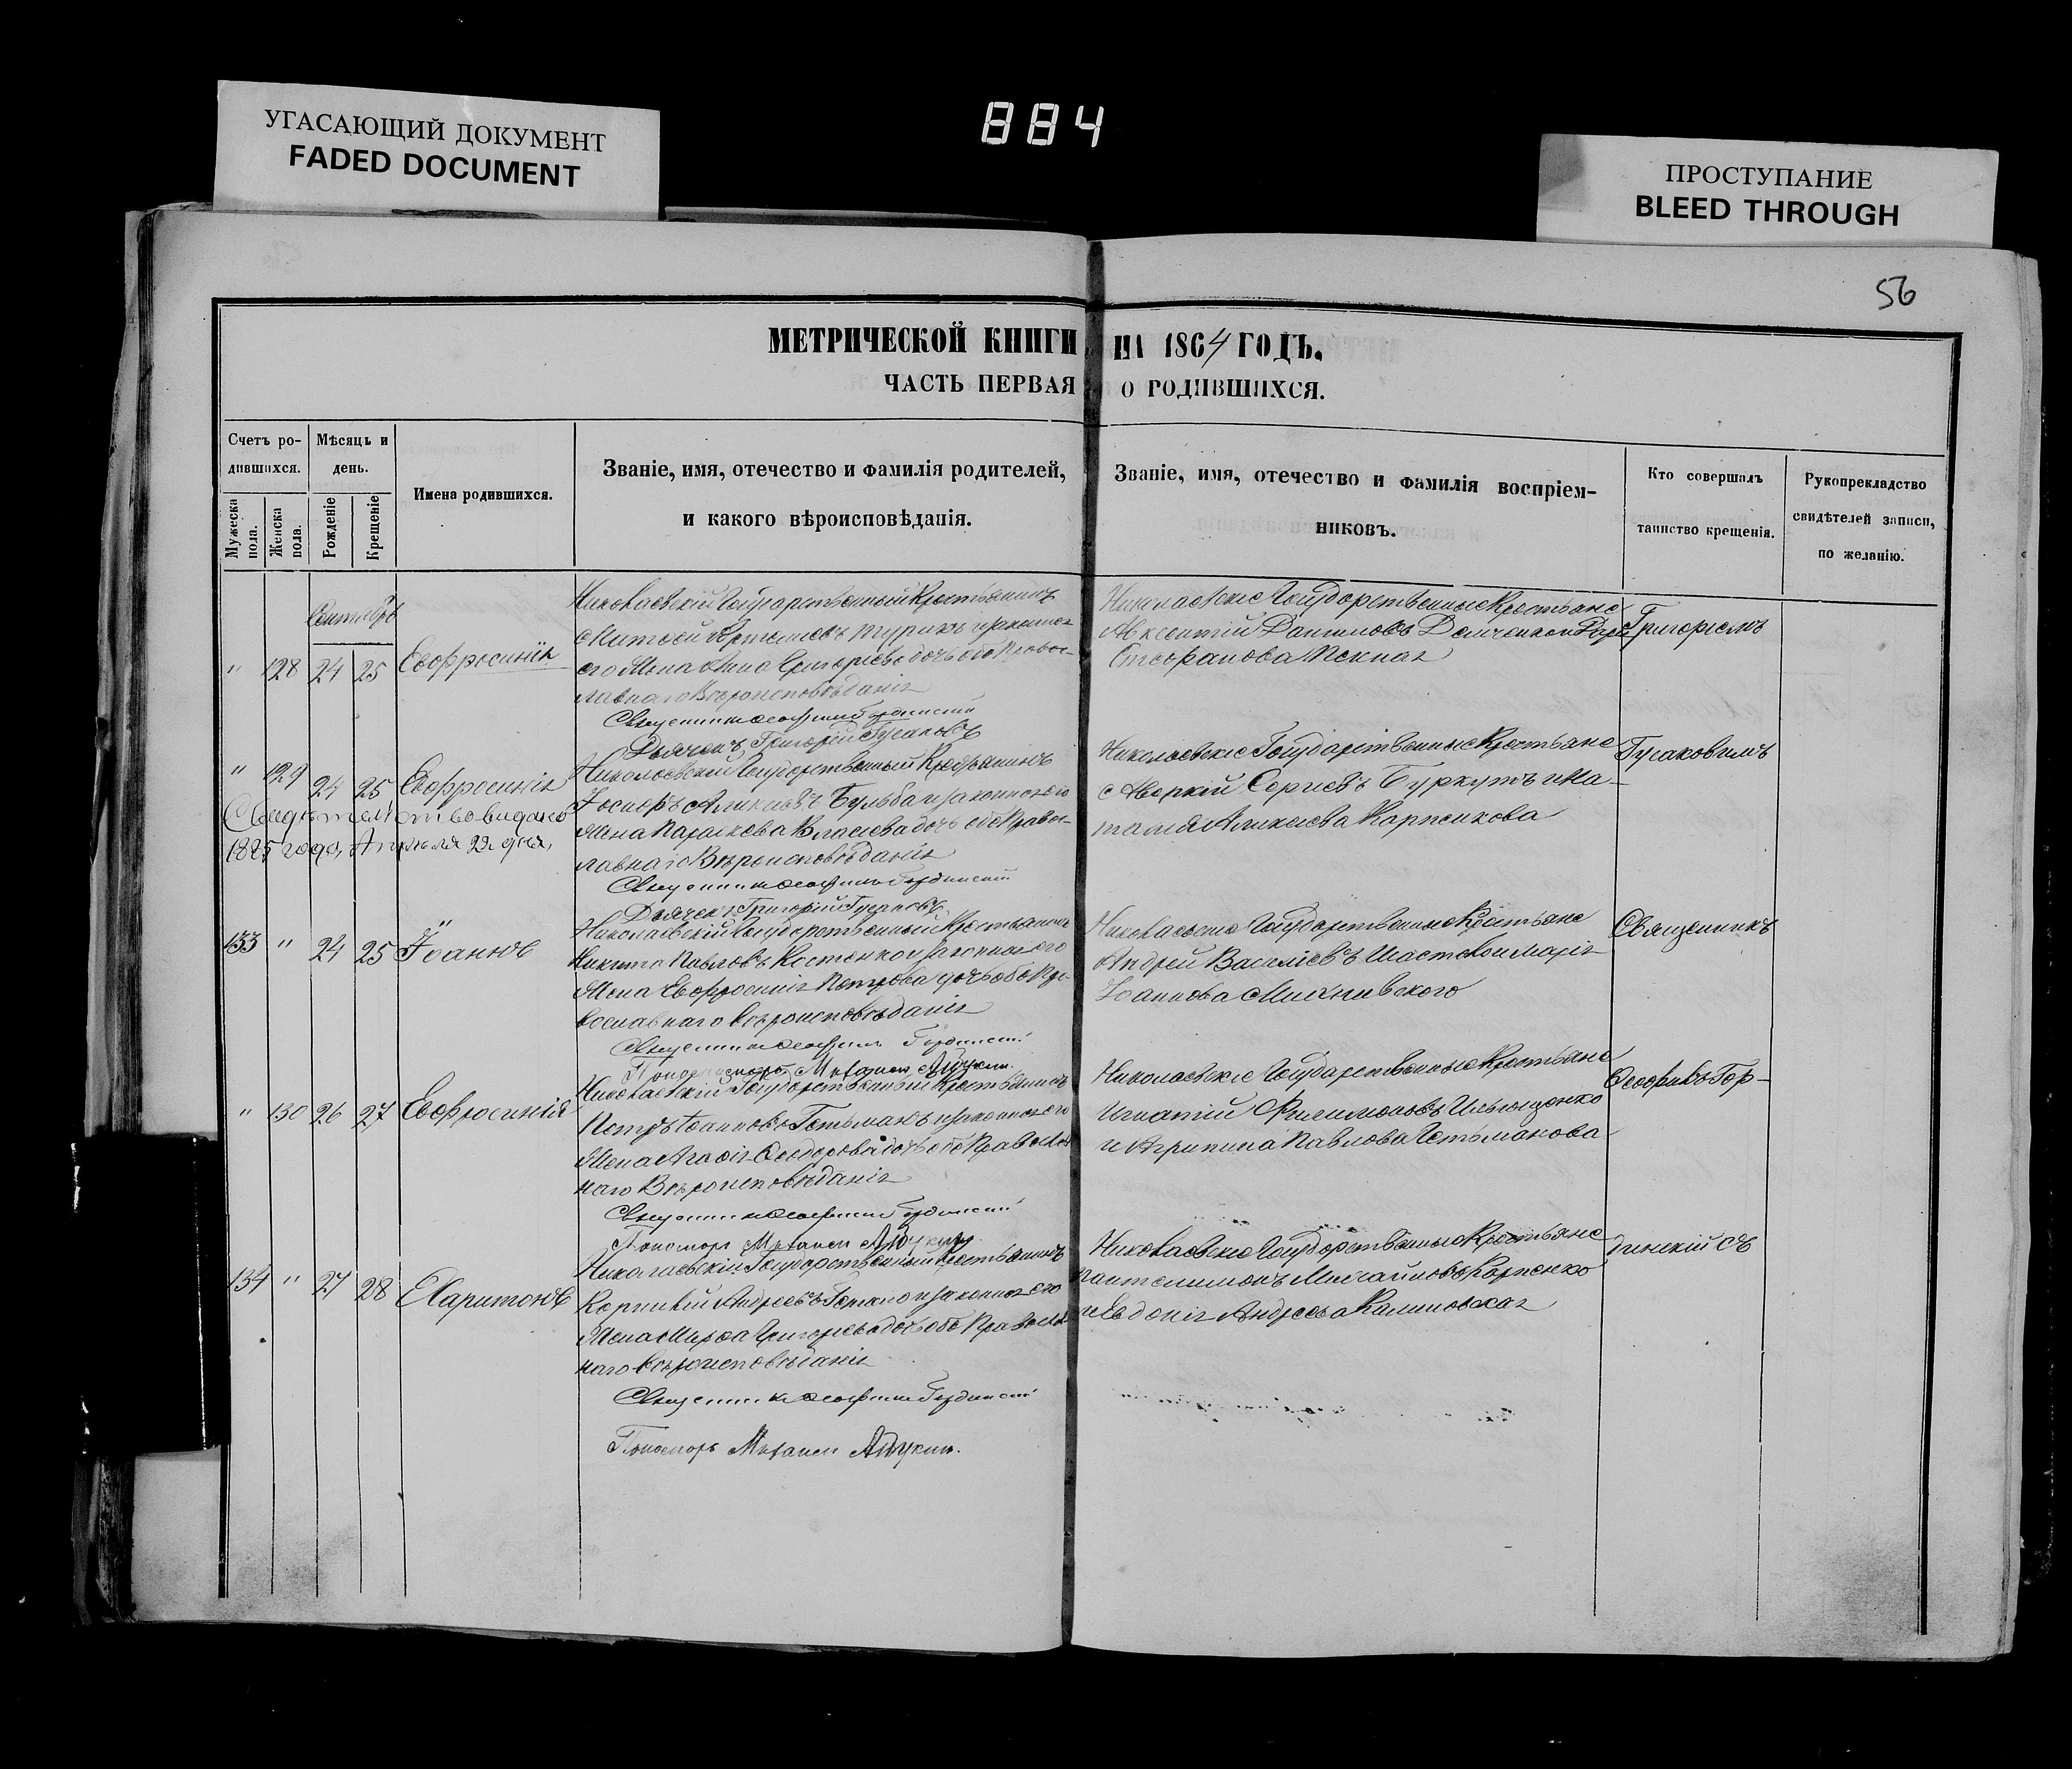 УГАСАЮЩИЙ ДОКУМЕНТ
FADED DOCUMENT
884
ПРОСТУПАНИЕ
BLEED THROUGH
56
МЕТРИЧЕСКОЙ КНИГИ НА 1864 ГОДЪ.
ЧАСТЬ ПЕРВАЯ О РОДИВШИХСЯ.
Счетъ ро-
дившихся.
Мужеска пола.
Женска пола.
Мѣсяцъ и
день.
Рожденіе
Крещеніе
Имена родившихся.
Званіе, имя, отечество и фамилія родителей,
и какого вѣроисповѣданія.
Званіе, имя, отечество и фамилія воспріем-
никовъ.
Кто совершалъ
таинство крещенія.
Рукоприкладство
свидѣтелей записи,
по желанію.
Сентябрь
" 128 24 25 Евфросинія
Николаевскій Государственный Крестьянинъ
законна-
его Жена Анна Григорьева дочь оба Правос-
лавнаго Вѣроисповѣданія
Священникъ Гординскій
Дьячекъ Григорій Гусаковъ
Николаевскіе Государственные Крестьяне
Авксентій Даниловъ Демченко
Стефанова
Григоріемъ
" 129 24 25 Евфросинія
Свидѣтельство видано
1885 года, Апрѣля 22 дня,
Николаевскій Государственный Крестьянинъ
Іосифъ Алексіевъ Бульба и законна его
Жена Параскева Власіева дочь оба Правос-
лавнаго Вѣроисповѣданія
Священникъ Гординскій
Дьячекъ Григорій Гусаковъ
Николаевскіе Государственные Крестьяне
Аверкій Сергіевъ Буркутъ и На-
талія Алексіева Карпенкова
Гусаковимъ
133 " 24 25 Іоаннъ
Николаевскій Государственный Крестьянинъ
Никита Павловъ Костенко и законная его
Жена Евфросинія Петрова дочь оба Пра-
вославнаго Вѣроисповѣданія
Священникъ Гординскій
Пономарь
Николаевскіе Государственные Крестьяне
Андрей Василіевъ и Марія
Іоаннова
Священникъ
" 130 26 27 Евфросинія
Николаевскій Государственный Крестьянинъ
Петръ Іоанновъ Гетьманъ и законная его
Жена Агафія Ѳеодорова дочь оба Православ-
наго Вѣроисповѣданія
Священникъ Гординскій
Пономарь
Николаевскіе Государственные Крестьяне
Игнатій Филимоновъ Ильющенко
и Агрипина Павлова Гетьманова
Ѳеофилъ Гор-
134 " 27 28 Харитонъ
Николаевскій Государственный Крестьянинъ
Корнилій Андреевъ и законная его
Жена Марфа Григорьева дочь оба Православ-
наго Вѣроисповѣданія
Священникъ Гординскій
Пономарь
Николаевскіе Государственные Крестьяне
Пантелимонъ Михайловъ Карпенко
и Евдокія Андреева Калиновская
динскій съ